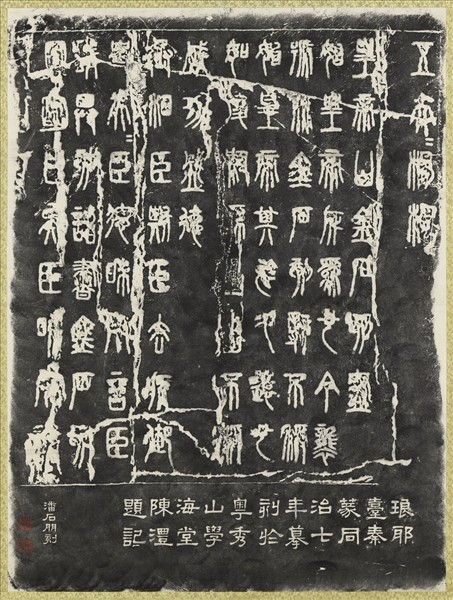 五夫〻楊樛
皇帝曰金石刻盡
始皇帝所爲也今襲
號而金石刻辭不稱
始皇帝其於久遠也
如後嗣爲之者不稱
成功盛德
丞相臣斯臣去疾御
史夫〻臣德昧死言臣
請具刻詔書金石刻
因明白矣臣昧死請
琅耶
臺秦
篆同
治七
年摹
刻於
粵秀
山學
海堂
陳澧
題記
潘石朋刻